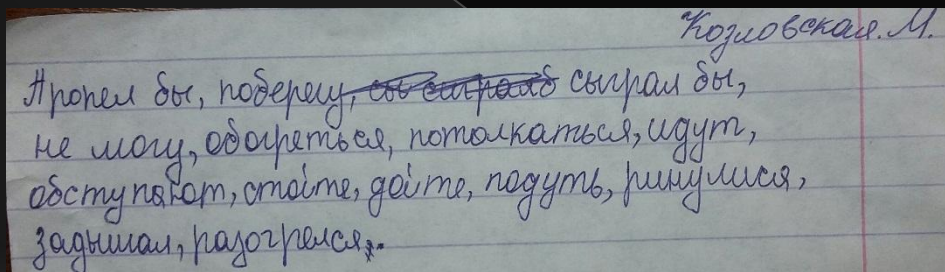 Козловская. М.
Пропел бы, поберегу, сыграл бы,
не могу, обогреться, потолкаться, идут,
обступают, стойте, дайте, подуть, ринулися,
задышал, разогрелся.